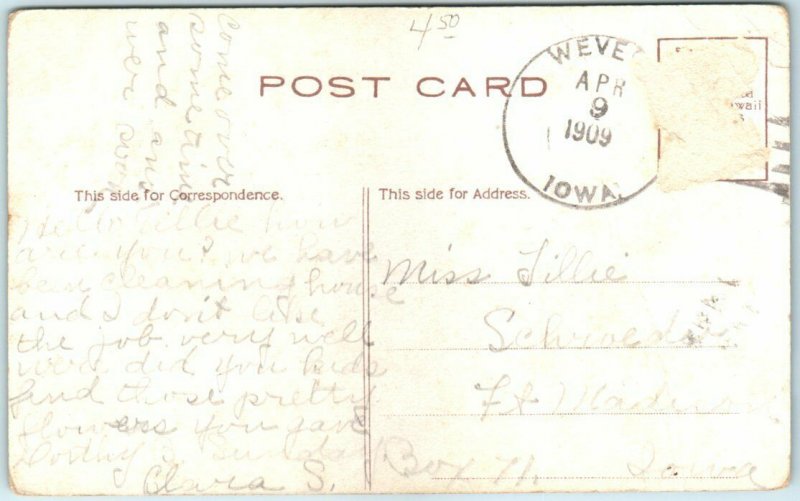 4 50
POST CARD
WEVE
APR
9
1909
IOWA
This side for Correspondence.
This side for Address.
Hello Tillie how
are you? we have
been cleaning house
and I don't like
the job very well
were did you kids
find those pretty
flowers you gave
Dorthy S. Sunday
Clara S.
Come over
some time
and ans
wer soon
Miss Tillie
Schroeder
Ft Madison
Box 71. Iowa